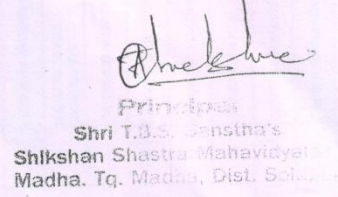 Principal
Shri T.B.S. Sanstha's
Shikshan Shastra Mahavidya
Madha. Tq. Madha, Dist. Sol